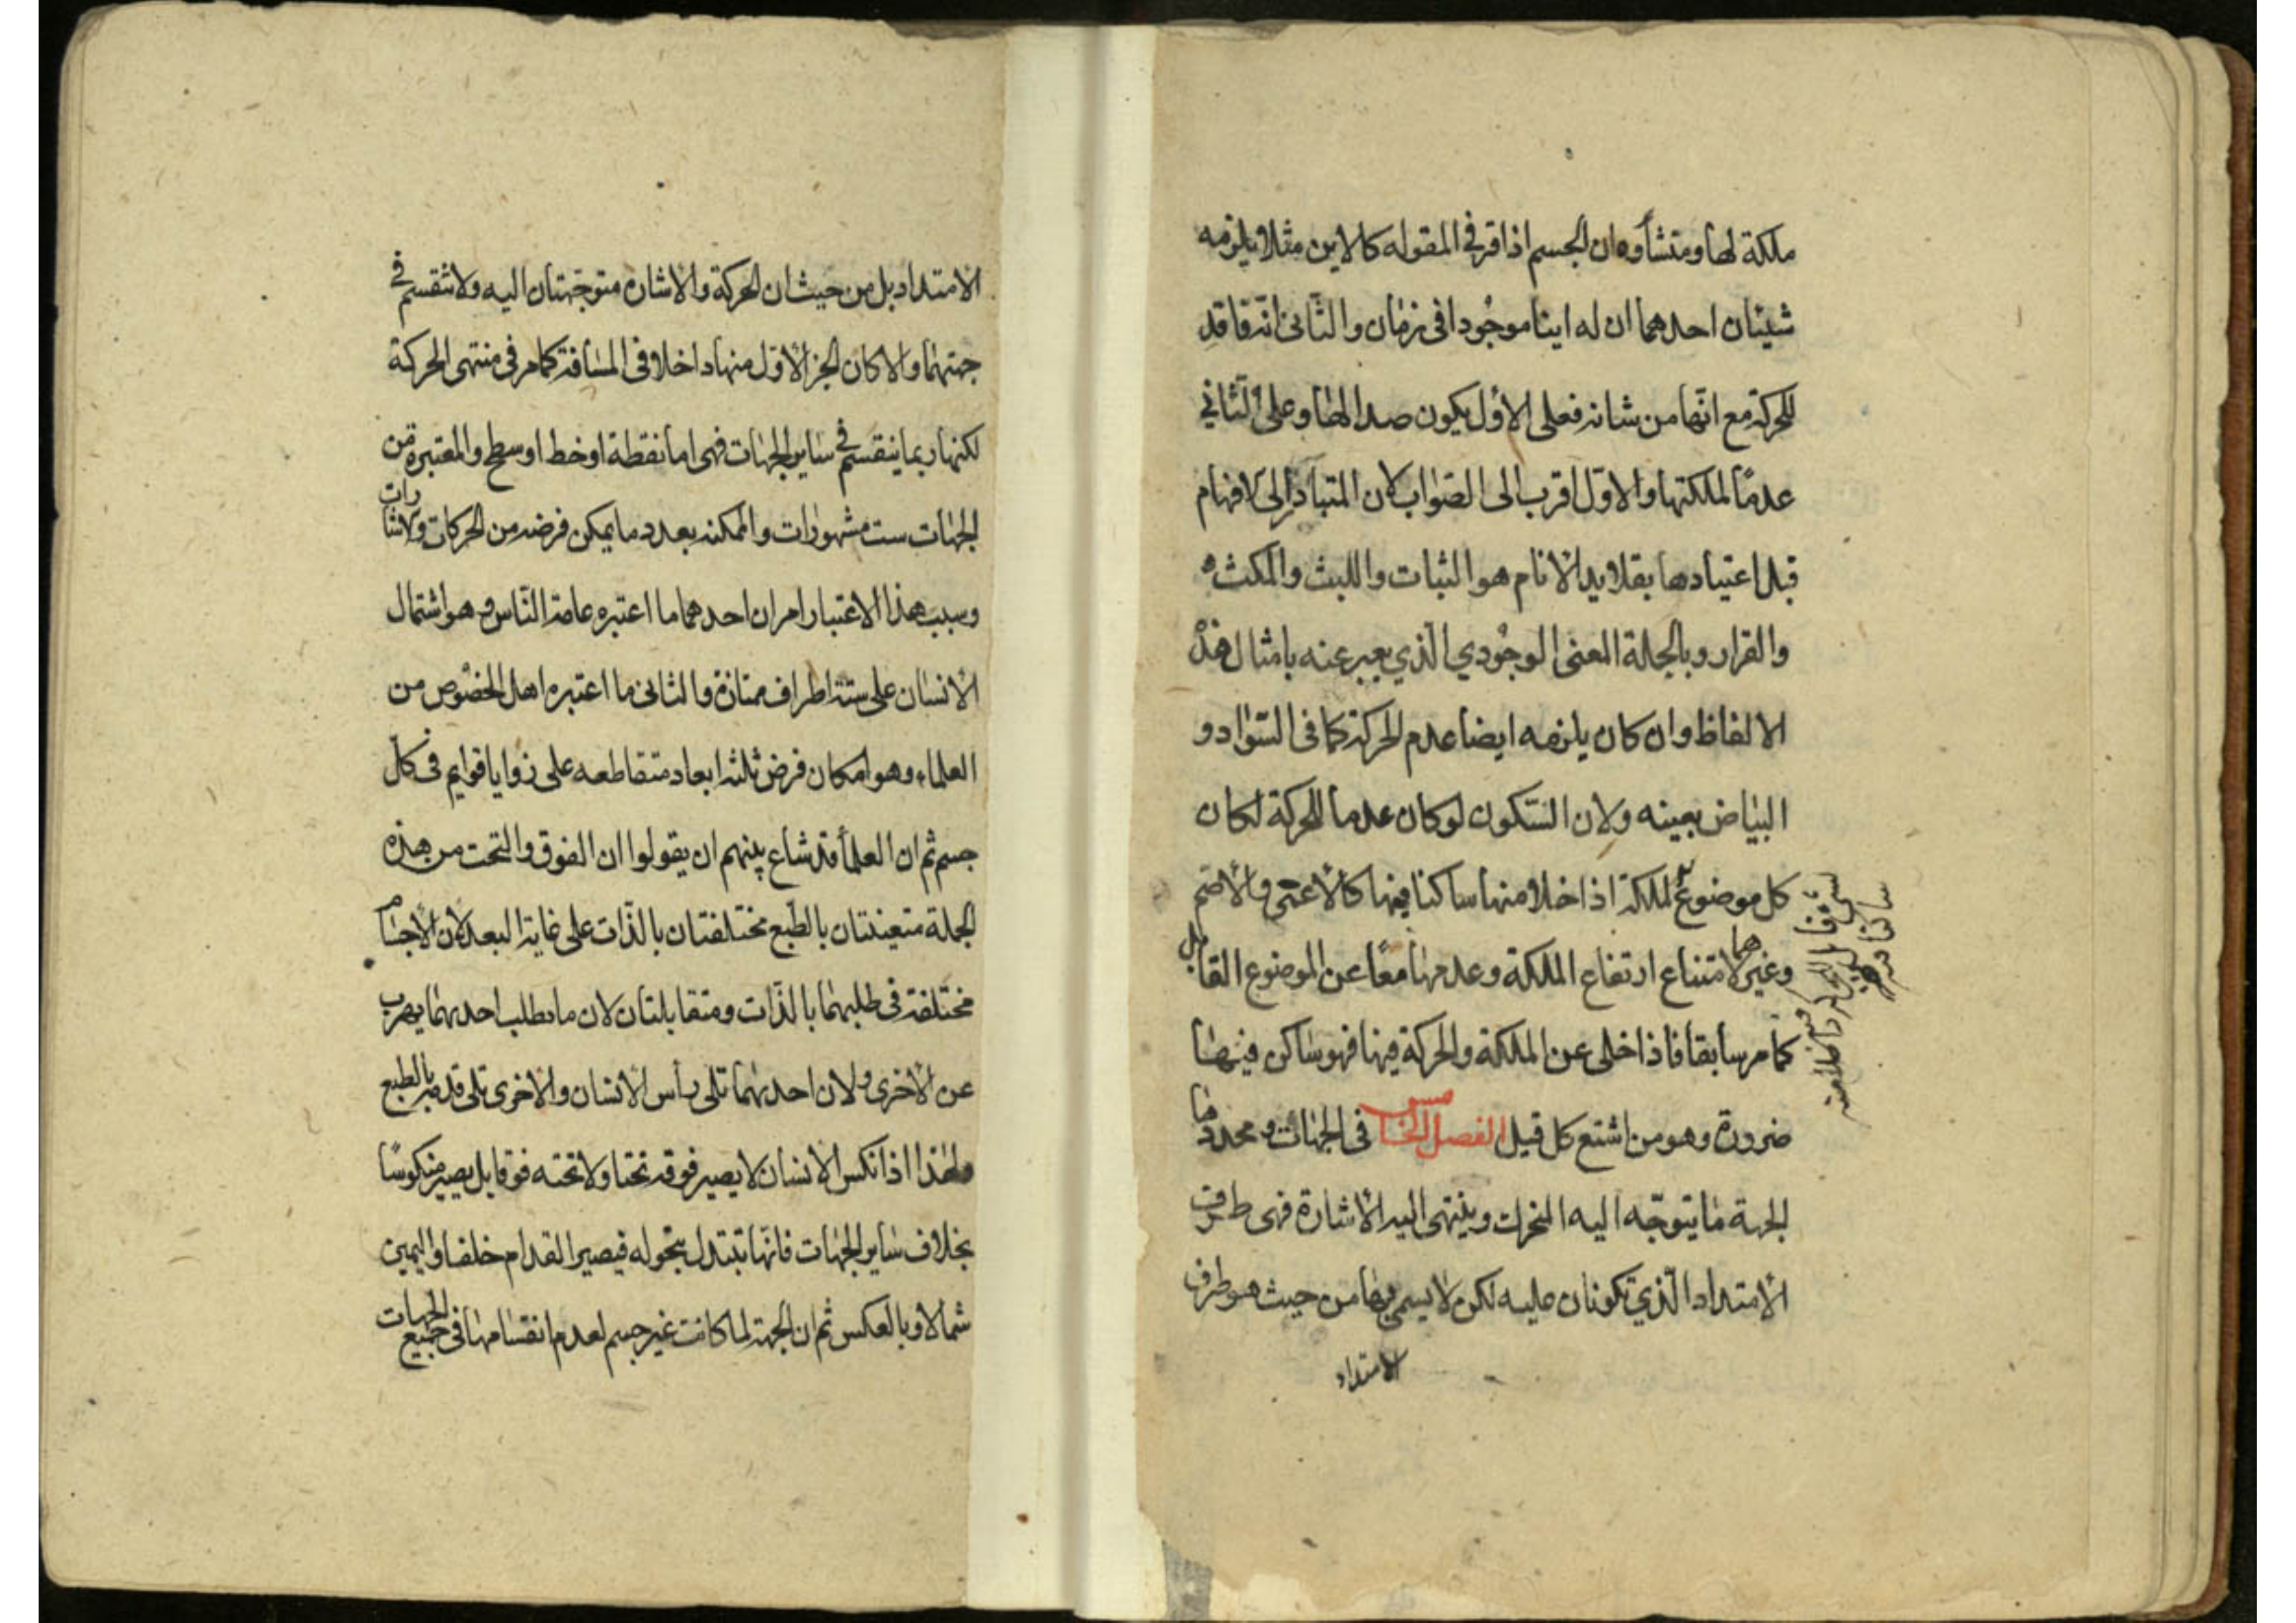 ملكة لها ومنشأوه ان الجسم اذا قر في المقوله كالاين مثلا يلزمه
شيئان احدهما ان له اينا موجودا فى زمان والثانى انه فاقد
للحركة مع انها من شانه فعلى الاول يكون ضدا لها وعلى الثاني
عدما لملكتها والاول اقرب الى الصواب لان المتبادر الى الافهام
قبل اعتيادها بقلايد الانام هو الثبات واللبث والمكث
والقرار وبالجملة المعنى الوجودي الذي يعبر عنه بامثال هذه
الالفاظ وان كان يلزمه ايضا عدم الحركة كما فى السواد و
البياض بعينه ولان السكون لو كان عدما للحركة لكان
كل موضوع للملكة اذا خلا منها ساكنا فيها كالاعمى والاصم
وغيرهما لامتناع ارتفاع الملكة وعدمها معا عن الموضوع القابل
كما مر سابقا فاذا خلى عن الملكة والحركة فيها فهو ساكن فيها
ضرورة وهو من اشنع كل قيل الفصل الخامس فى الجهات ومحددها
الجهة ما يتوجه اليه المتحرك وينتهى اليه الاشارة فهى طرف
الامتداد الذي تكونان عليه لكن لا يسمى بها من حيث هو طرف
الامتداد
الامتداد بل من حيث ان الحركة والاشارة متوجهتان اليه ولا تنقسم في
جهتهما والا كان الجزء الاول منها داخلا فى المسافة كما مر فى منتهى الحركة
لكنها ربما ينقسم في ساير الجهات فهى اما نقطة او خط او سطح والمعتبرة من
الجهات ست مشهورات والممكنه بعدد ما يمكن فرضه من الحركات والاشارات
وسبب هذا الاعتبار امران احدهما ما اعتبره عامة الناس وهو اشتمال
الانسان على ستة اطراف ممتازة والثانى ما اعتبره اهل الخصوص من
العلماء وهو امكان فرض ثلثة ابعاد متقاطعه على زوايا قوايم فى كل
جسم ثم ان العلماء قد شاع بينهم ان يقولوا ان الفوق والتحت من هذه
الجملة متعينتان بالطبع مختلفتان بالذات على غاية البعد لان الاجسام
مختلفة فى طلبهما بالذات ومتقابلتان لان ما يطلب احديهما يهرب
عن الاخرى ولان احديهما تلى رأس الانسان والاخرى تلى قدميه بالطبع
ولهذا اذا نكس الانسان لا يصير فوقه تحتا ولا تحته فوقا بل يصير منكوسا
بخلاف ساير الجهات فانها تتبدل بتحوله فيصير القدام خلفا واليمين
شمالا وبالعكس ثم ان الجهة لما كانت غير جسم لعدم انقسامها فى جميع الجهات